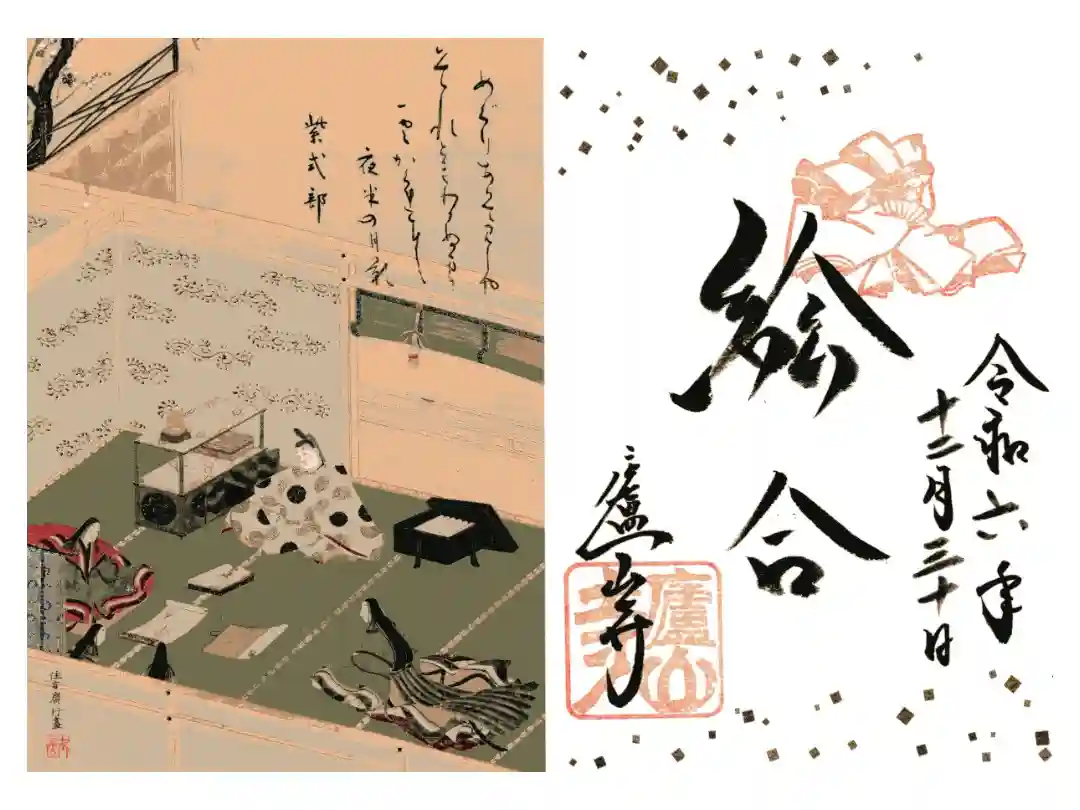 めぐりあひてみしや
それともわかぬまに
雲かくれにし
夜半の月影
紫式部
住吉廣行畫
令和六年
十二月三十日
絵合
廬山寺
廬山
寺